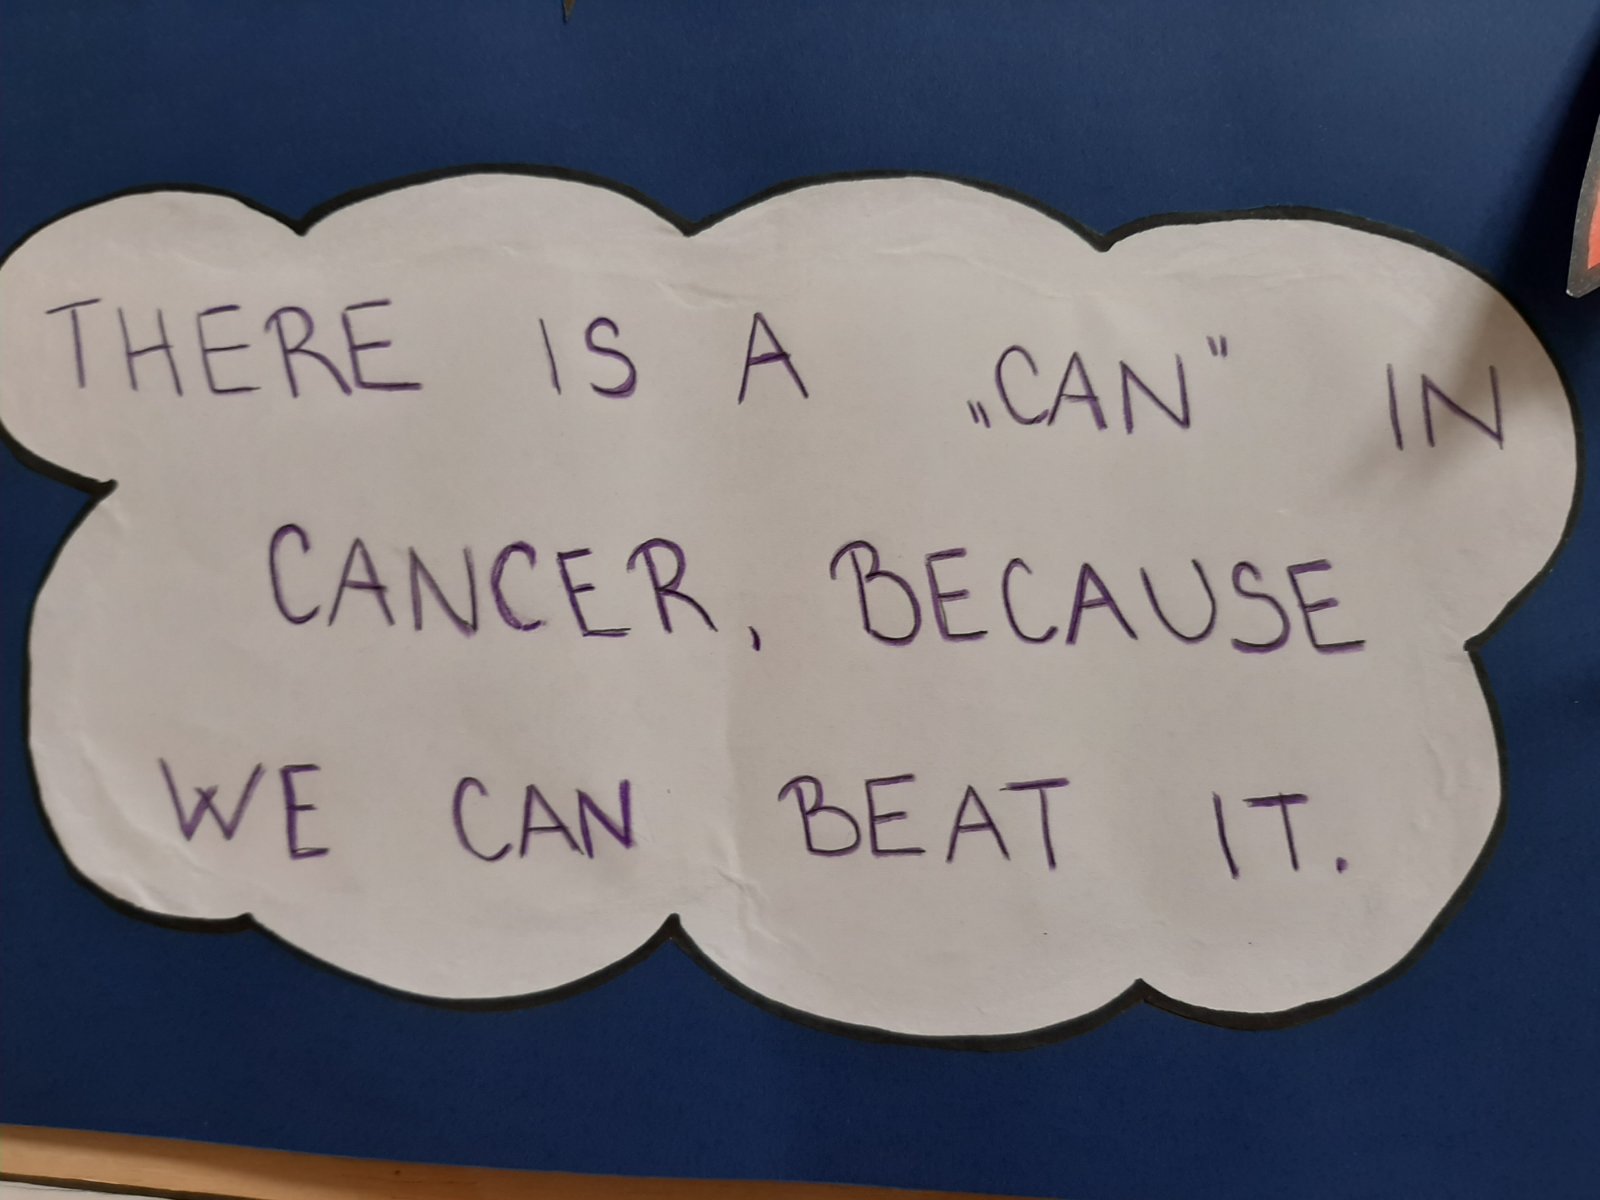 THERE IS A „CAN" IN
CANCER, BECAUSE
WE CAN BEAT IT.